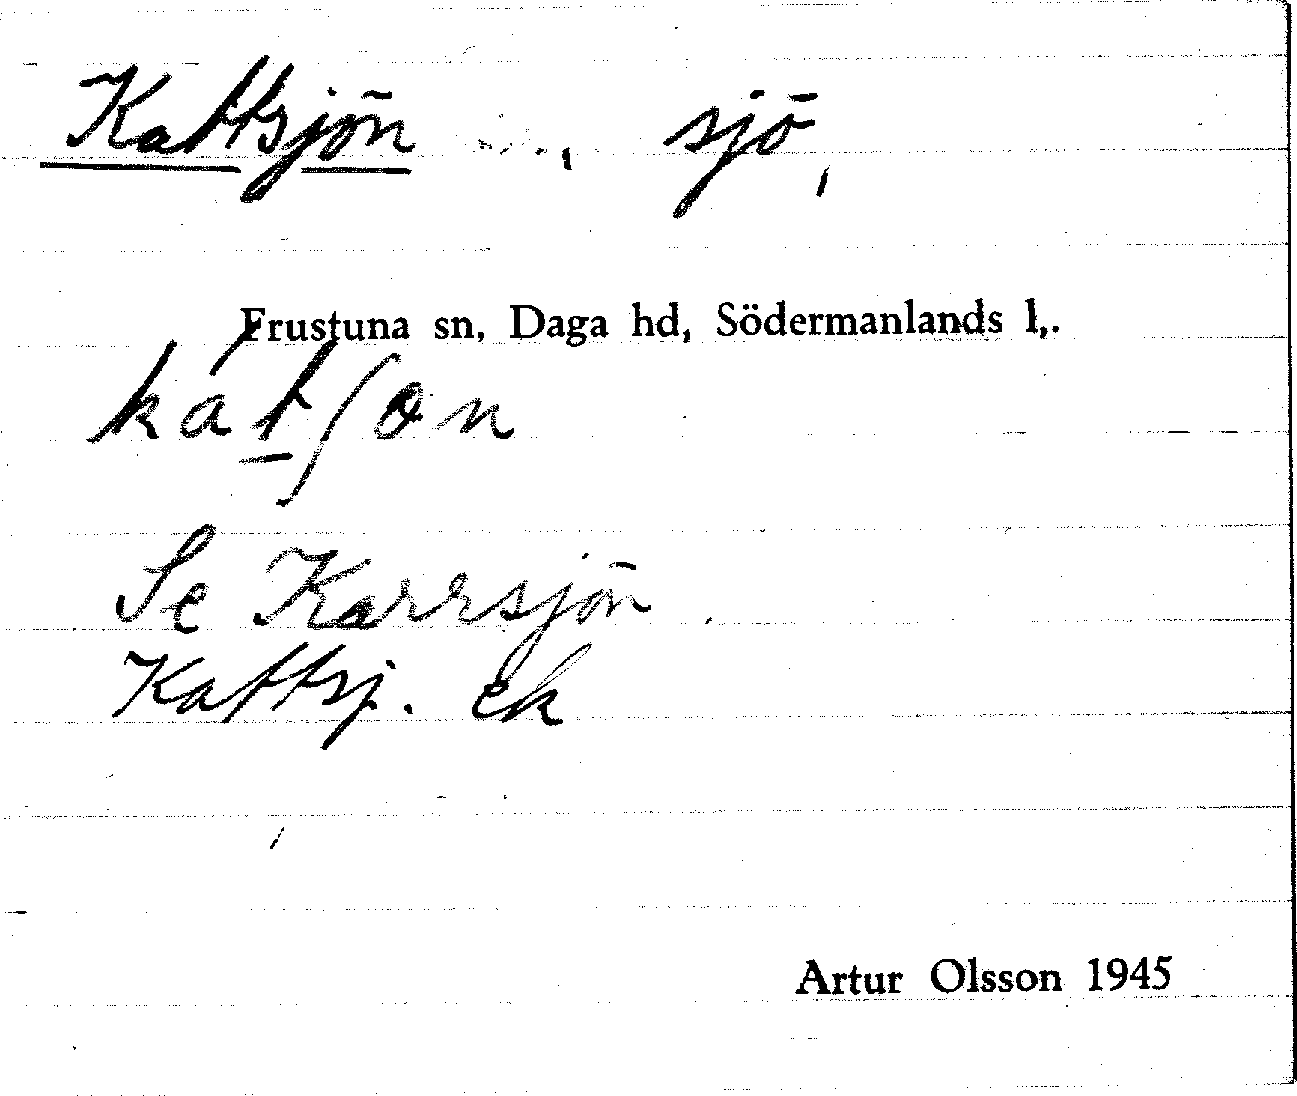 Kattsjön sjö,
Frustuna sn, Daga hd, Södermanlands l,.
kát̲ʃøn
Se Karrsjön
Kattsj. ek
Artur Olsson 1945